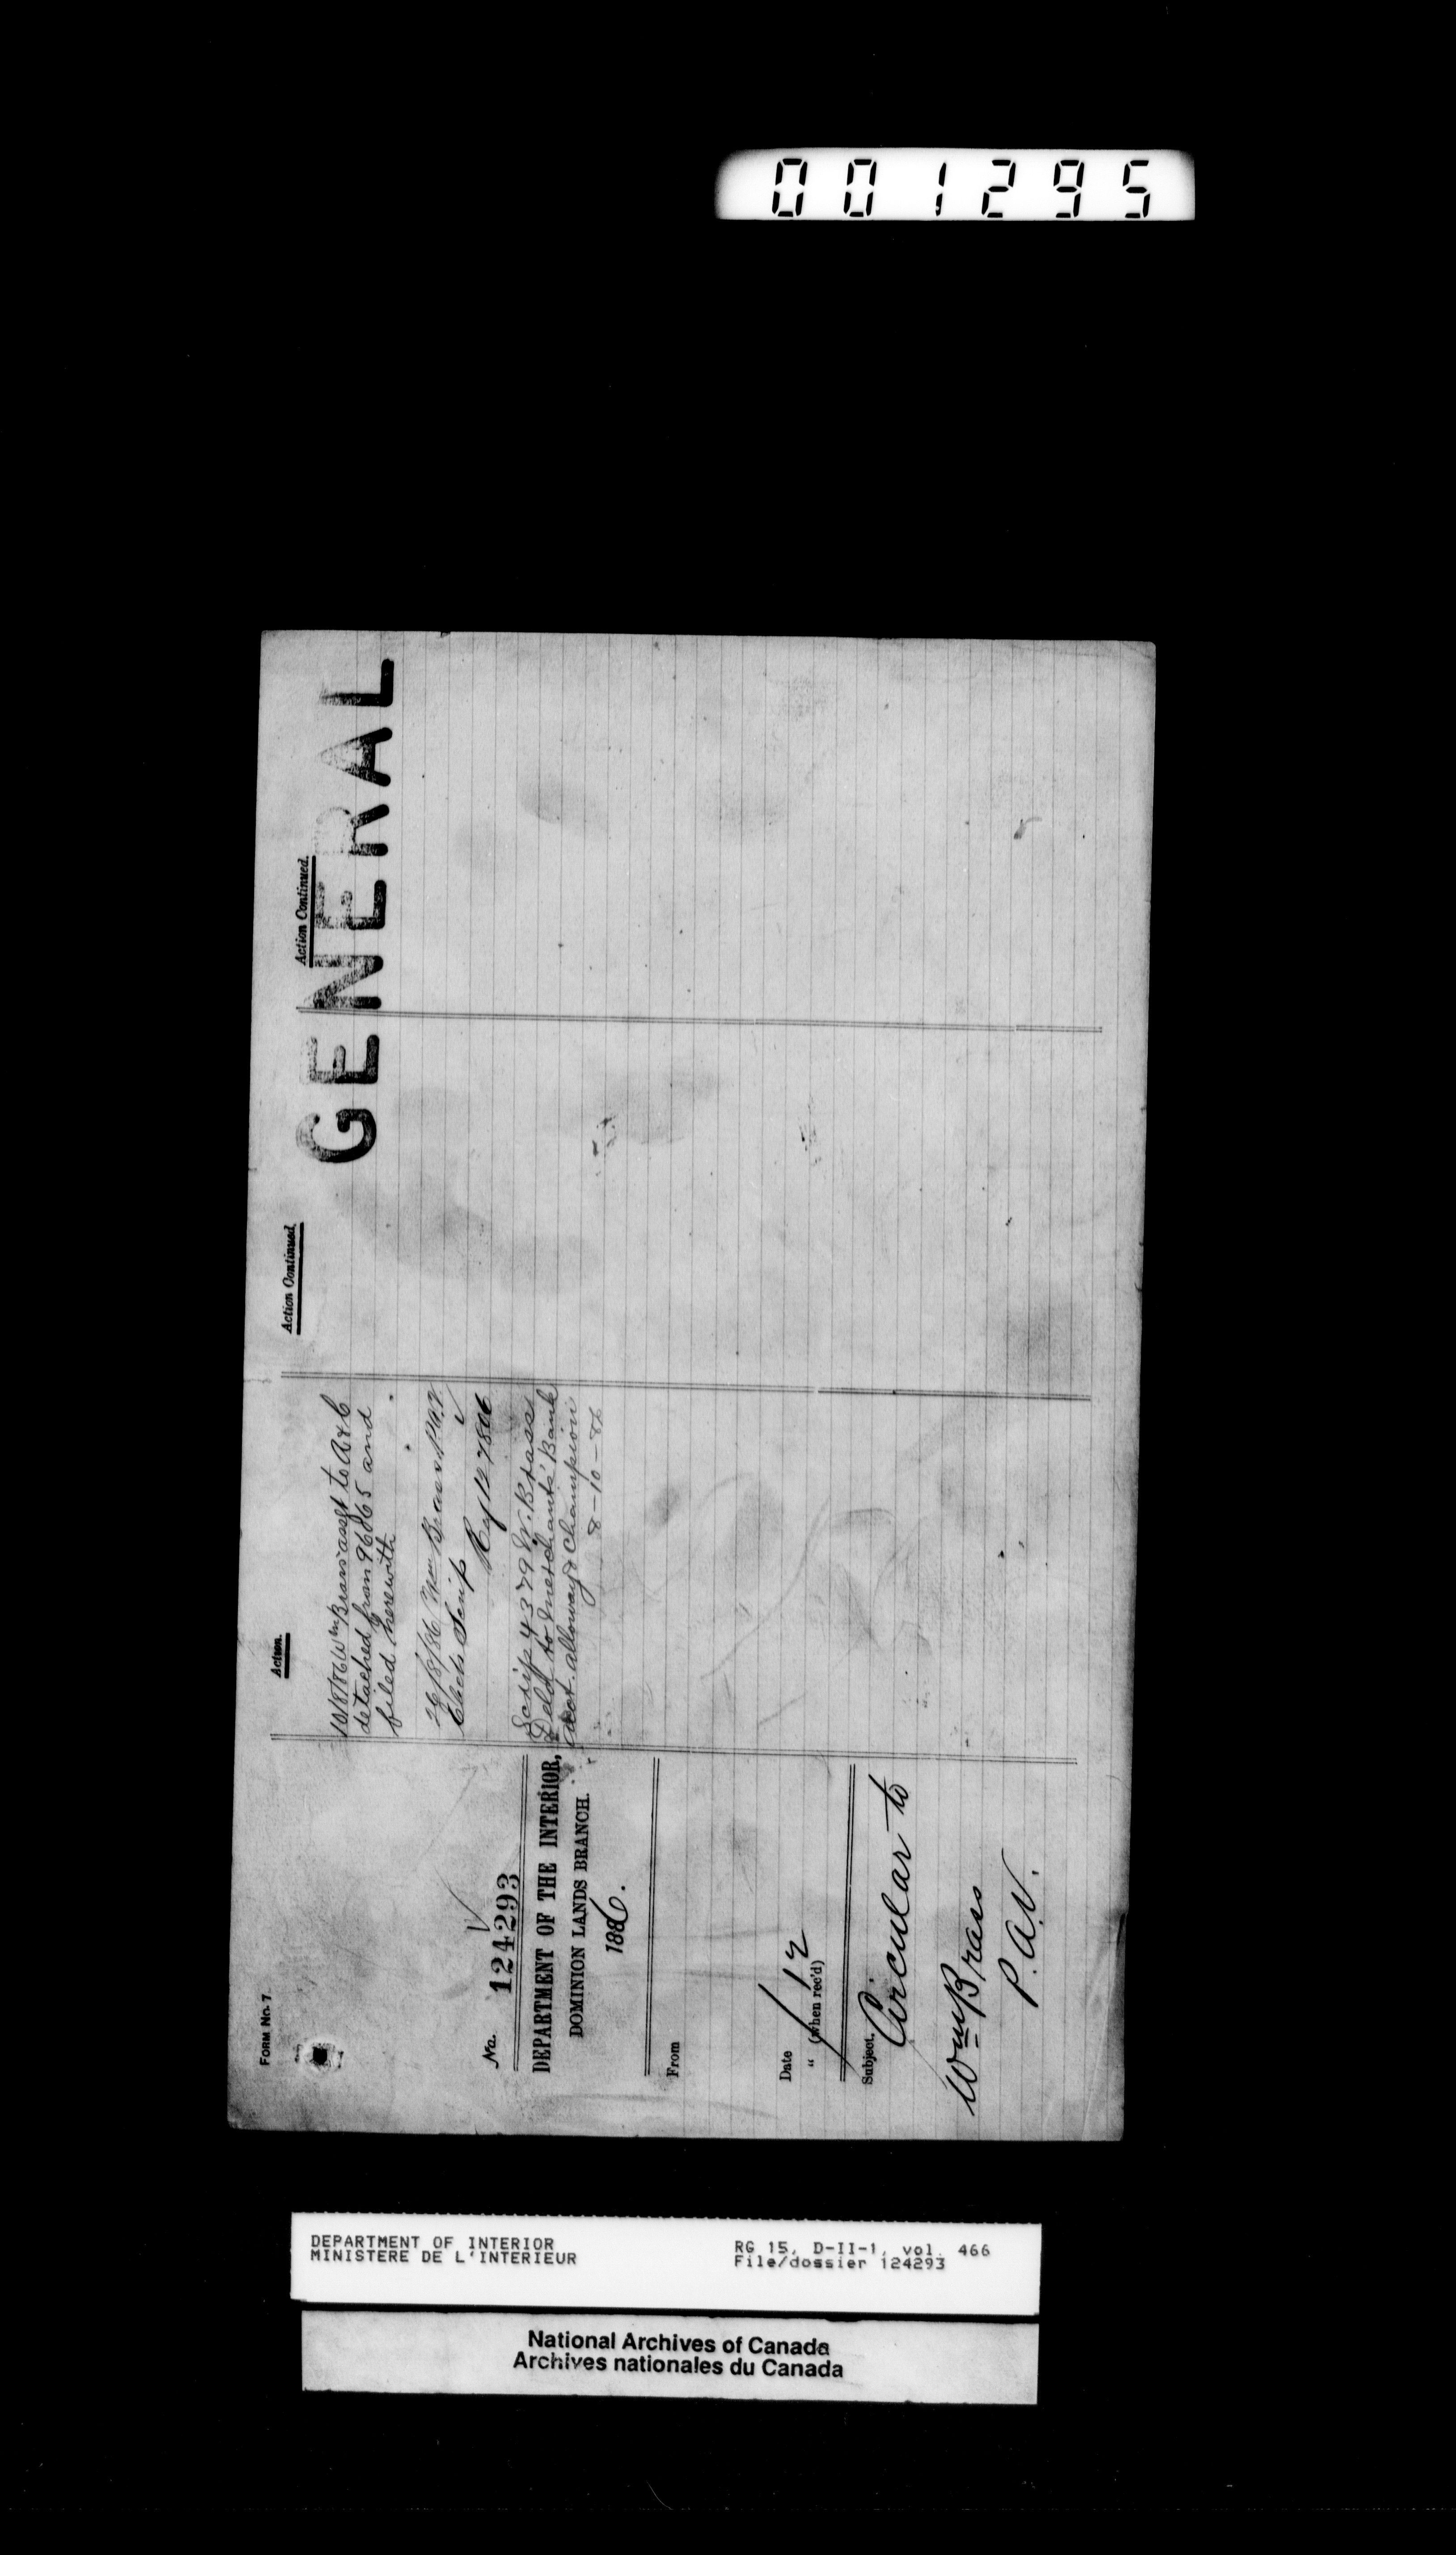 001295
FORM No. 7.
No. 124293
DEPARTMENT OF THE INTERIOR,
DOMINION LANDS BRANCH.
1886.
From
Date
" (when rec'd) 12
Subject.
Circular to
Wm Brass
P.A.N.
Action.
10/8/86 Wm Brass assgt to A & C
detached from 96865 and
filed herewith
26/8/86 Wm Brass
Scrip
Reg
Scrip 4379 W. Brass
Deld to Merchants' Bank
acct. Alloway & Champion
8-10-86
Action Continued.
Action Continued.
GENERAL
DEPARTMENT OF INTERIOR
MINISTERE DE L'INTERIEUR
RG 15, D-II-1, vol. 466
File/dossier 124293
National Archives of Canada
Archives nationales du Canada